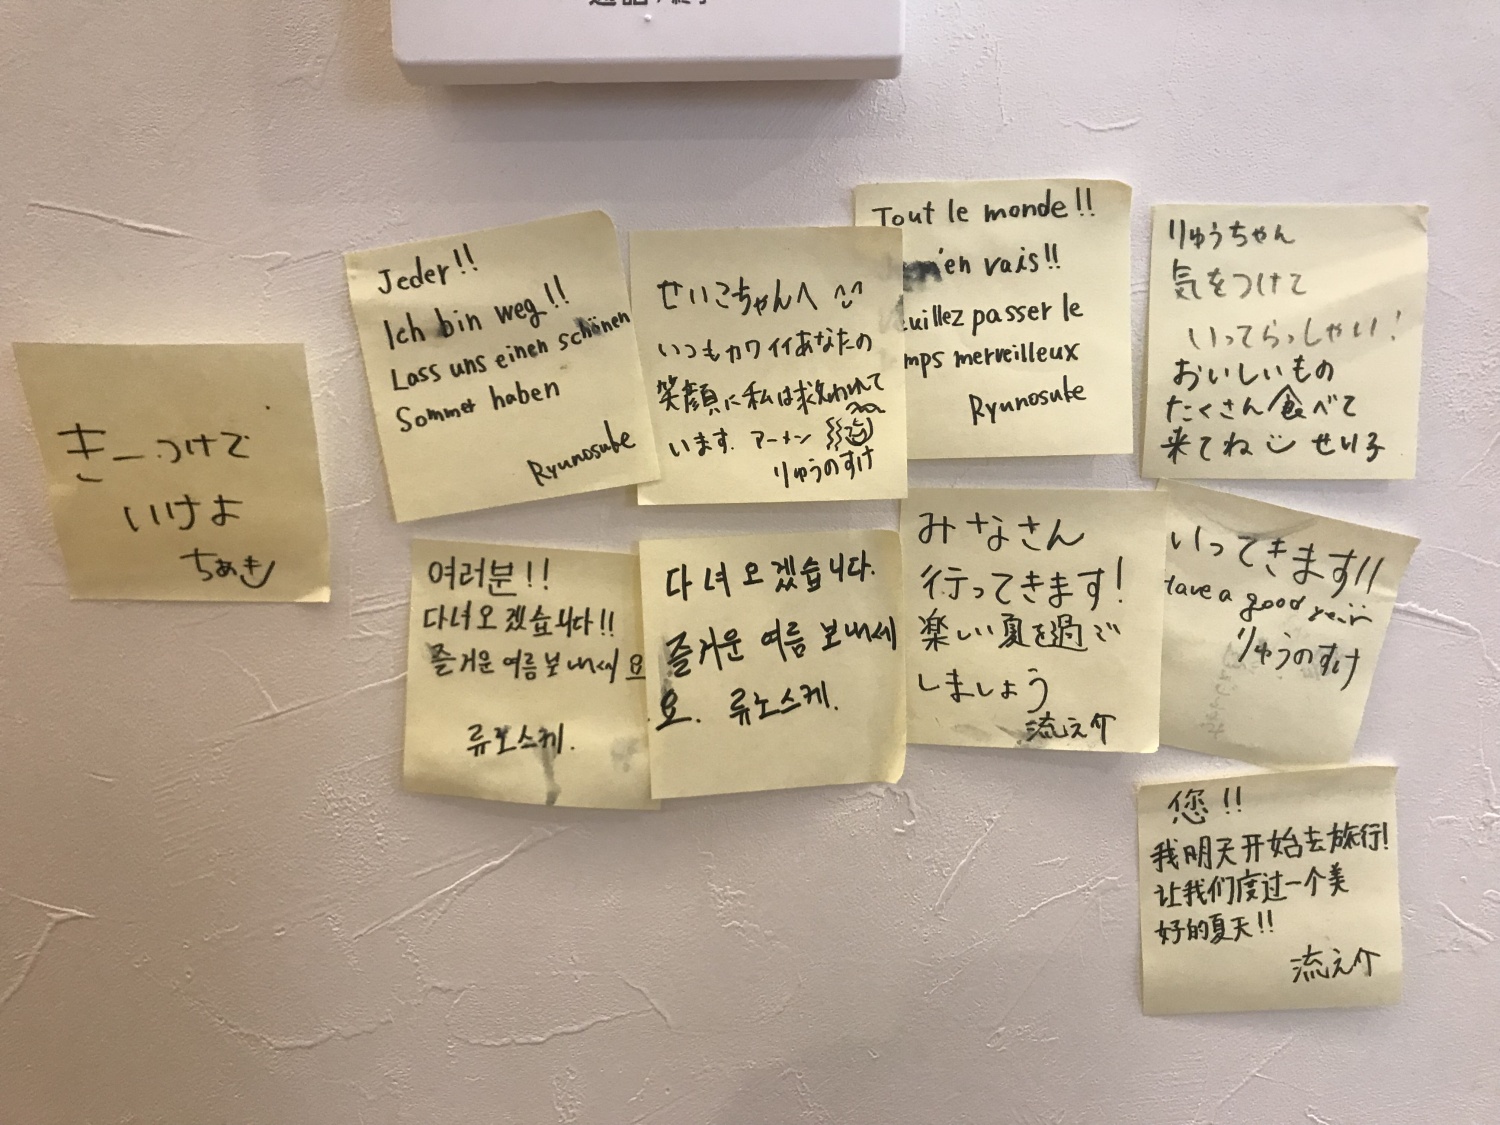 きーつけて
いけよ
ちあき
Jeder!!
Ich bin weg!!
Lass uns einen schönen
Sommer haben
Ryunosuke
せいこちゃんへ ^^
いつもカワイイあなたの
笑顔に私は救われて
います. アーメン
りゅうのすけ
Tout le monde!!
m'en vais!!
euillez passer le
mps merveilleux
Ryunosuke
りゅうちゃん
気をつけて
いってらっしゃい!
おいしいもの
たくさん食べて
来てね せい子
여러분!!
다녀오겠습니다!!
즐거운 여름 보내세요
류노스케.
다녀오겠습니다.
즐거운 여름 보내세
요. 류노스케.
みなさん
行ってきます!
楽しい夏を過ごし
しましょう
流之介
いってきます!!
Have a good
りゅうのすけ
您!!
我明天开始去旅行!
让我们度过一个美
好的夏天!!
流之介